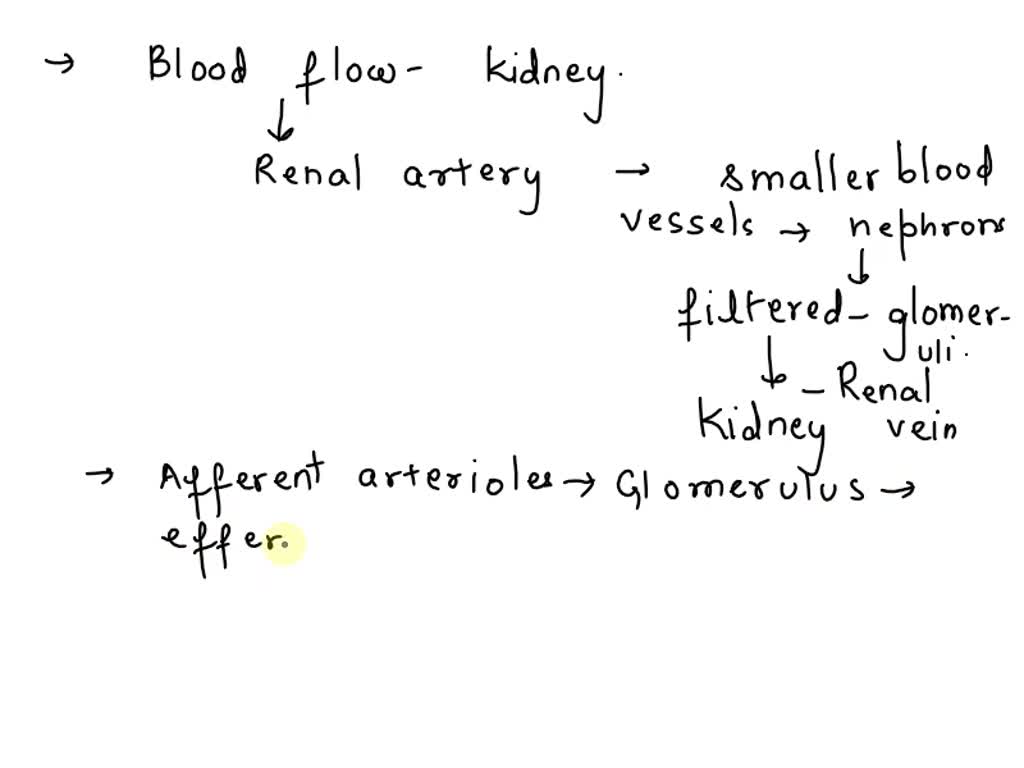 → Blood flow - kidney.
↓
Renal artery → smaller blood
vessels → nephrons
↓
filtered - glomer-
uli.
↓
- Renal
Kidney vein
→ Afferent arterioles → Glomerulus →
effer.